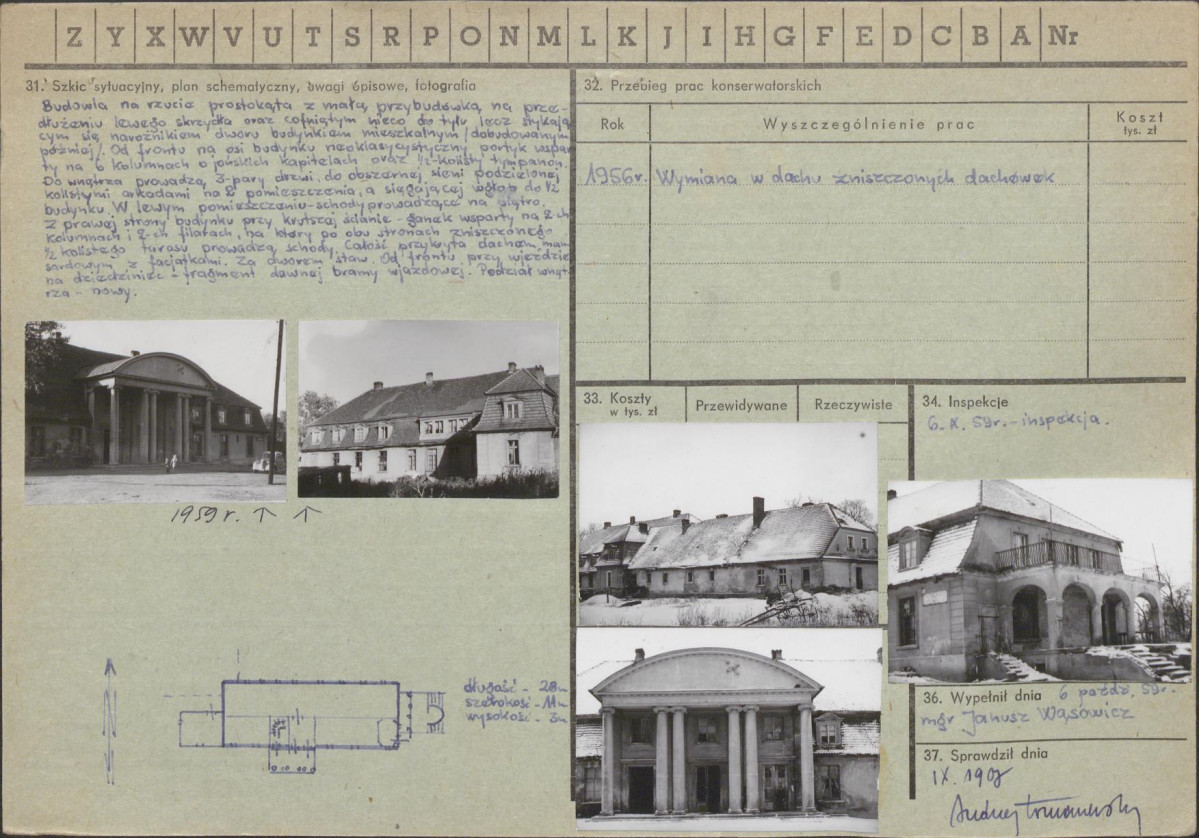 Z Y X W V U T S R P O N M L K J I H G F E D C B A Nr
31. Szkic sytuacyjny, plan schematyczny, uwagi opisowe, fotografia
Budowla na rzucie prostokąta z małą przybudówką na prze-
dłużeniu lewego skrzydła oraz cofniętym nieco do tyłu lecz stykają
cym się narożnikiem dworu budynkiem mieszkalnym /dobudowanym
później/. Od frontu na osi budynku neoklasycystyczny portyk wspar
ty na 6 kolumnach o jońskich kapitelach oraz 1/2-kolisty tympanon.
Do wnętrza prowadzą 3-pary drzwi, do obszernej sieni podzielonej
kolistymi arkadami na 2 pomieszczenia, a sięgającej wgłąb do 1/2
budynku. W lewym pomieszczeniu-schody prowadzące na piętro.
Z prawej strony budynku przy krutszej ścianie - ganek wsparty na 2-ch
kolumnach i 2-ch filarach, na który po obu stronach zniszczonego
1/2 kolistego tarasu prowadzą schody. Całość przykryta dachem man
sardowym z facjatkami. Za dworem staw. Od frontu przy wjeździe
na dziedziniec - fragment dawnej bramy wjazdowej. Podział wnęt
rza - nowy.
1959 r. ↑ ↑
długość - 28m
szerokość - 11m
wysokość - 3m
32. Przebieg prac konserwatorskich
Rok
Wyszczególnienie prac
Koszt
tys. zł
1956r. Wymiana w dachu zniszczonych dachówek
33. Koszty
w tys. zł
Przewidywane
Rzeczywiste
34. Inspekcje
6. X. 59r. - inspekcja.
36. Wypełnił dnia 6 paźdz. 59r.
mgr Janusz Wąsowicz
37. Sprawdził dnia
IX. 19
Andrzej